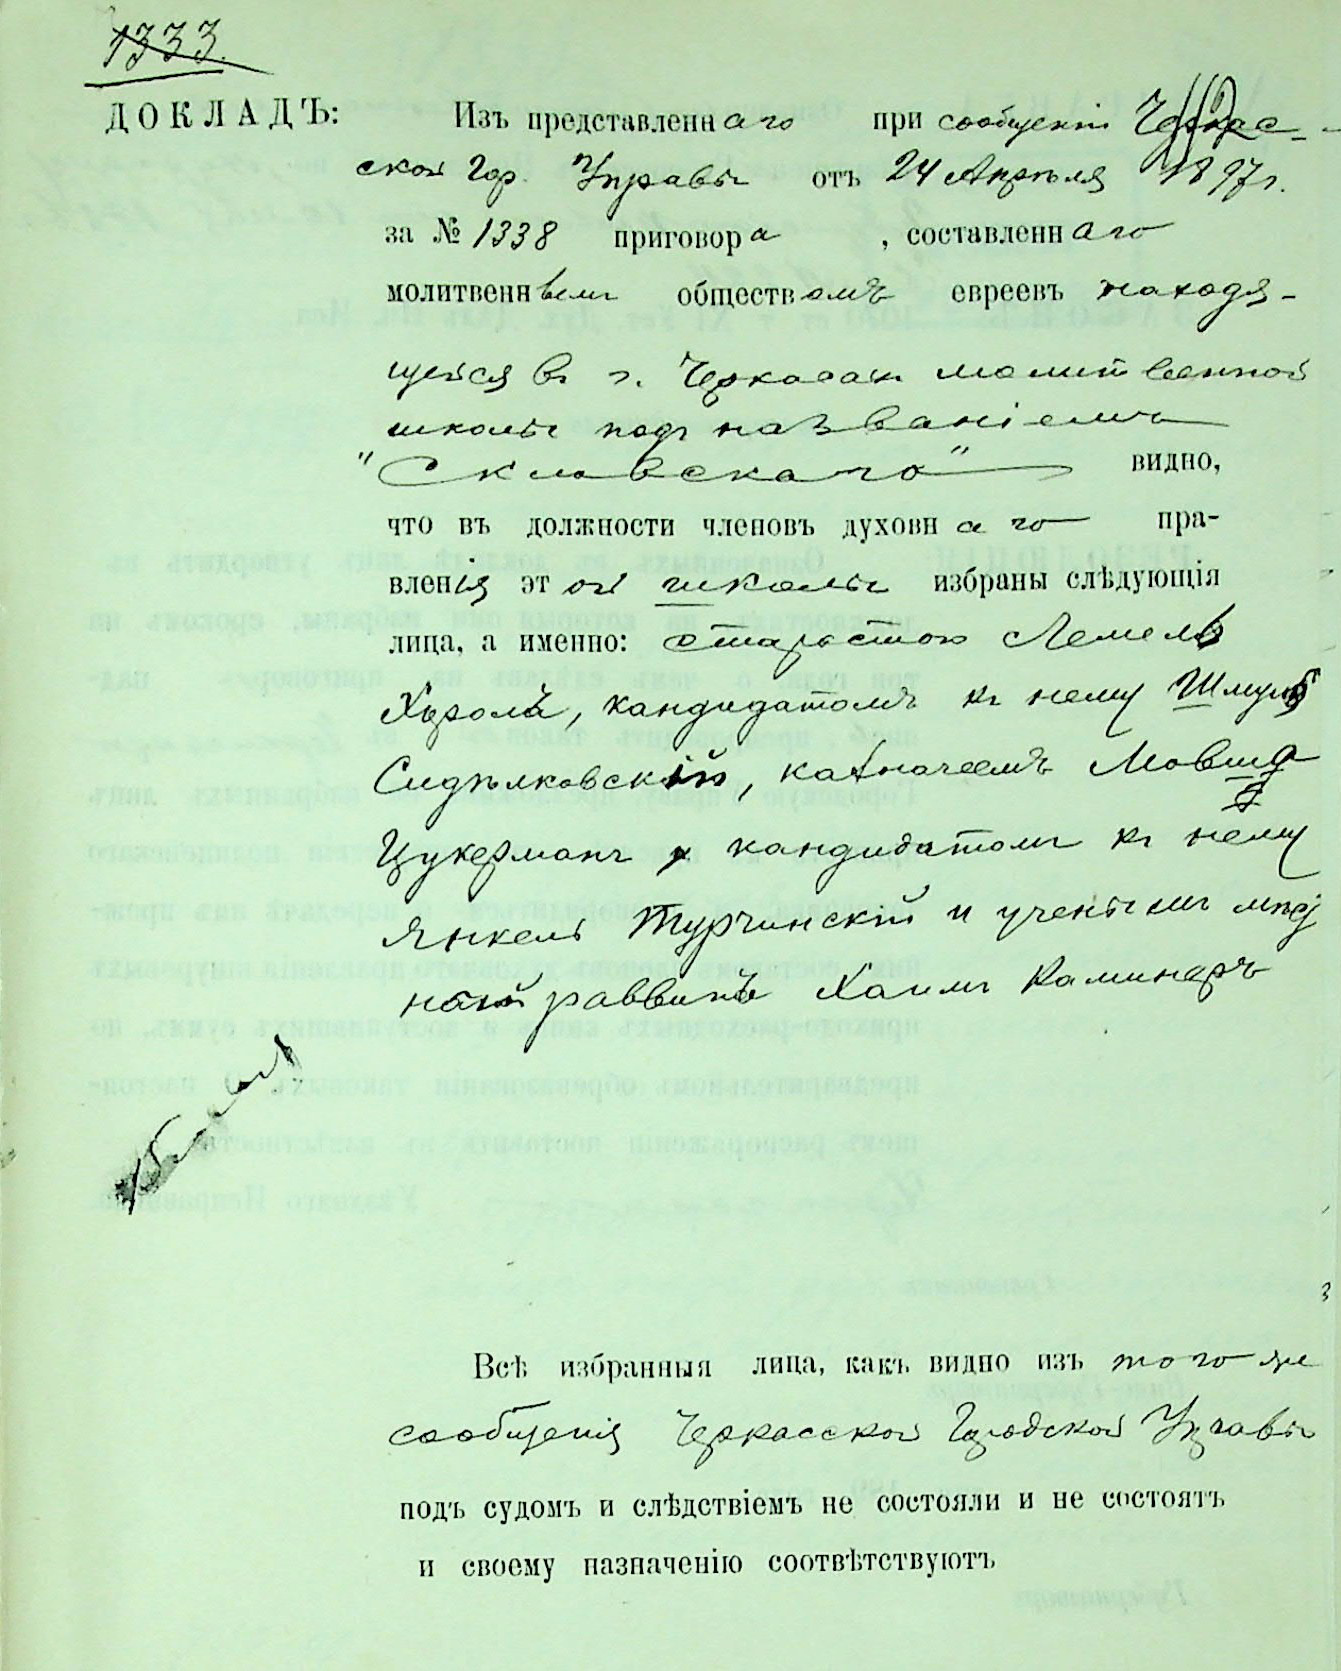 1333.
ДОКЛАДЪ: Изъ представленнаго при сообщеніи Черкас-
ской Гор. Управы отъ 24 Апрѣля 1897 г.
за № 1338 приговора, составленнаго
молитвеннымъ обществомъ евреевъ находя-
щейся въ г. Черкасах молитвенной
школы подъ названіемъ
"Склавскаго" видно,
что въ должности членовъ духовнаго пра-
вленія этой школы избраны слѣдующія
лица, а именно: старостою Лемель
кандидатомъ къ нему Шмуль
казначеемъ Мовша
Цукерманъ, кандидатомъ къ нему
Янкель Турчинскій и ученымъ
раввинъ Хаимъ Каминеръ
Всѣ избранныя лица, какъ видно изъ того же
сообщенія Черкасской Городской Управы
подъ судомъ и слѣдствіемъ не состояли и не состоятъ
и своему назначенію соотвѣтствуютъ